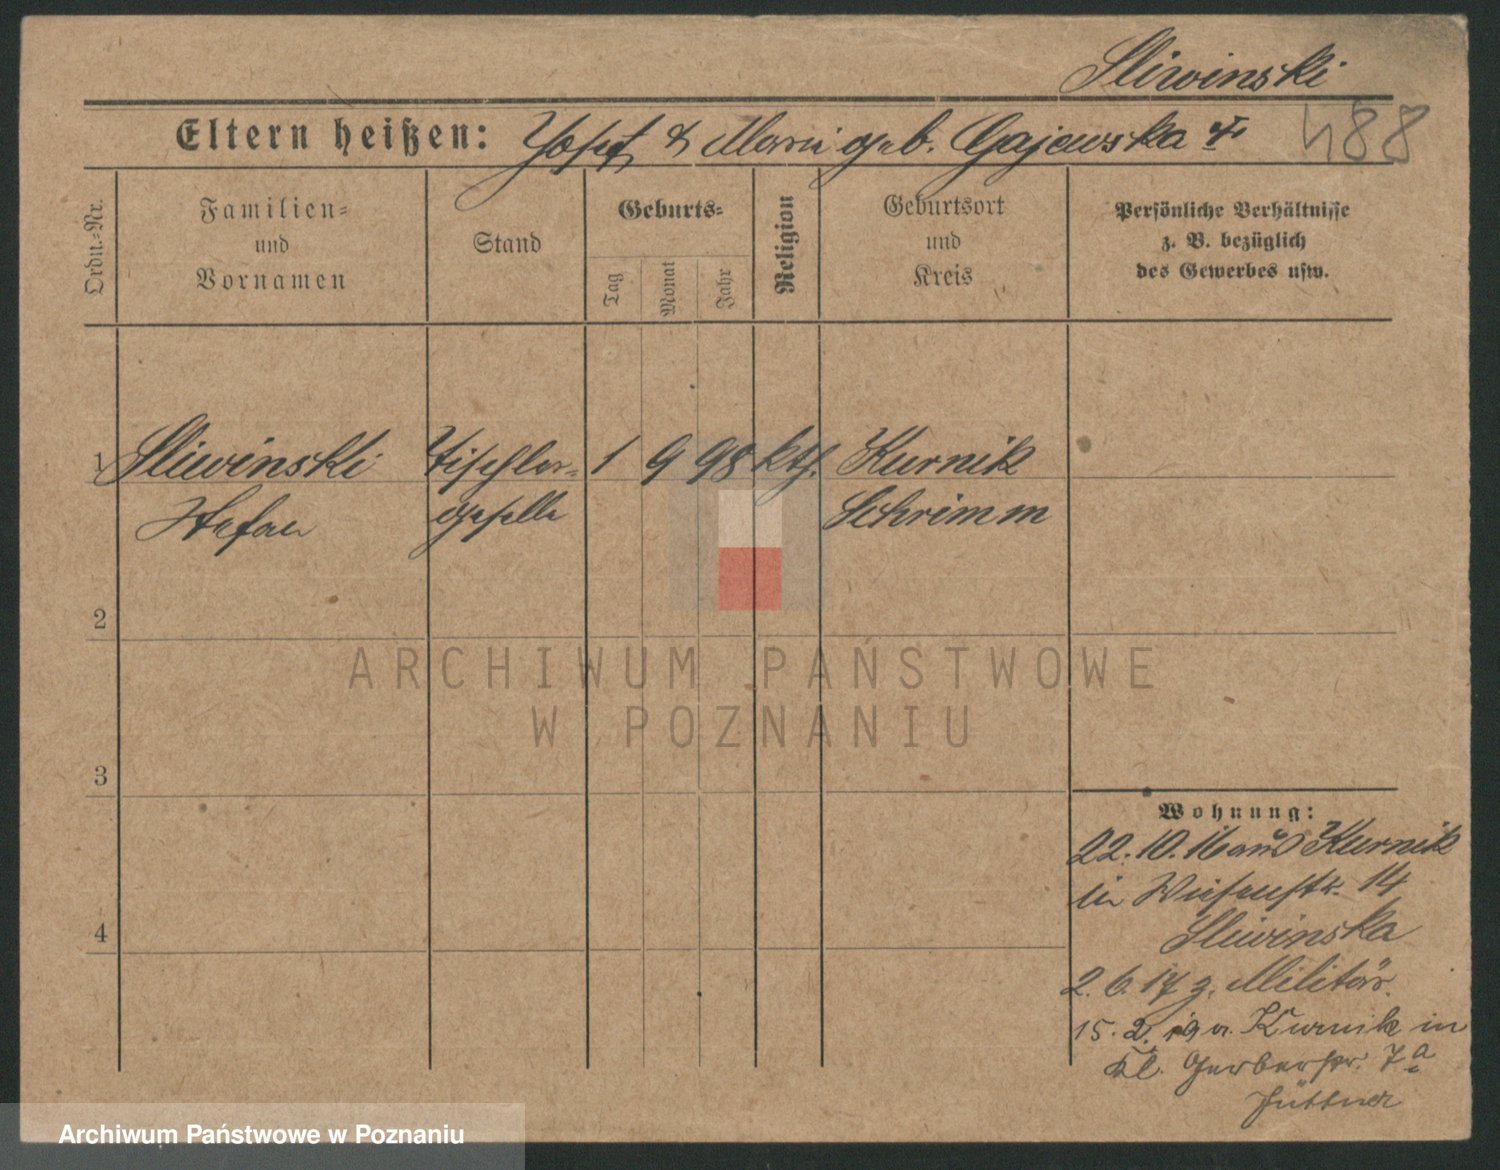 Sliwinski
Eltern heißen: Josef & Marie geb. Gajewska
488
Ordn.-Nr.
Familien-
und
Vornamen
Stand
Geburts-
Tag
Monat
Jahr
Religion
Geburtsort
und
Kreis
Persönliche Verhältnisse
z. B. bezüglich
des Gewerbes usw.
1 Sliwinski Tischler- 1 9 98 kth. Kurnik
Stefan geselle Schrimm
2
ARCHIWUM PAŃSTWOWE
W POZNANIU
3
Wohnung:
22.10.16 aus Kurnik
in Wiesenstr. 14
Sliwinska
4
2.6.17 z. Militär.
15.2.19 a. Kurnik in
Kl. Gerberstr. 7a
Jüttner
Archiwum Państwowe w Poznaniu